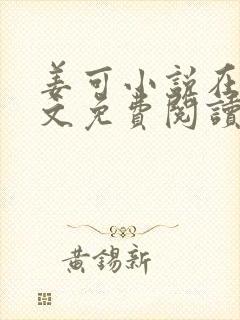 姜可小説在
文免費閱讀
黃錫新